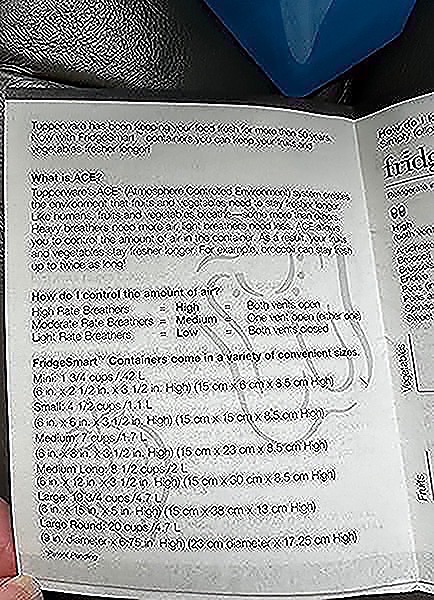 Tupperware has been keeping your food fresh for more than 50 years.
Now with FridgeSmart™ containers you can keep your fruits and
vegetables fresher longer!
What is ACE?
Tupperware's ACE* (Atmosphere Controlled Environment) system creates
the environment that fruits and vegetables need to stay fresher longer.
Like humans, fruits and vegetables breathe—some more than others.
Heavy breathers need more air, light breathers need less. ACE allows
you to control the amount of air in the container. As a result, your fruits
and vegetables stay fresher longer. For example, broccoli can stay fresh
up to twice as long!
How do I control the amount of air?
High Rate Breathers = High = Both vents open
Moderate Rate Breathers = Medium = One vent open (either one)
Light Rate Breathers = Low = Both vents closed
FridgeSmart™ Containers come in a variety of convenient sizes.
Mini: 1 3/4 cups/.42 L
(6 in. x 2 1/2 in. x 3 1/2 in. High) (15 cm x 6 cm x 8.5 cm High)
Small: 4 1/2 cups/1.1 L
(6 in. x 6 in. x 3 1/2 in. High) (15 cm x 15 cm x 8.5 cm High)
Medium: 7 cups/1.7 L
(6 in. x 9 in. x 3 1/2 in. High) (15 cm x 23 cm x 8.5 cm High)
Medium Long: 8 1/2 cups/2 L
(6 in. x 12 in. x 3 1/2 in. High) (15 cm x 30 cm x 8.5 cm High)
Large: 19 3/4 cups/4.7 L
(6 in. x 15 in. x 5 in. High) (15 cm x 38 cm x 13 cm High)
Large Round: 20 cups/4.7 L
(9 in. diameter x 6.75 in. High) (23 cm diameter x 17.25 cm High)
*patent pending
fridg
High
Vegetables
Fruits